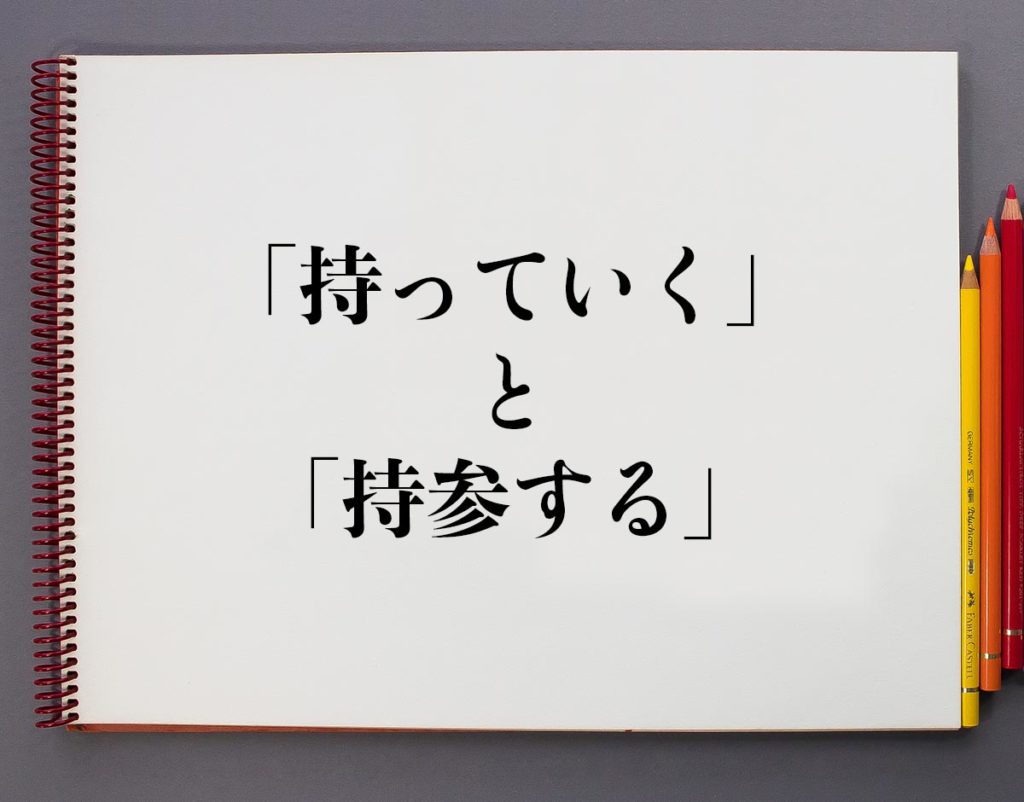 「持っていく」
と
「持参する」
GERMANY
Polychromos
FABER CASTELL